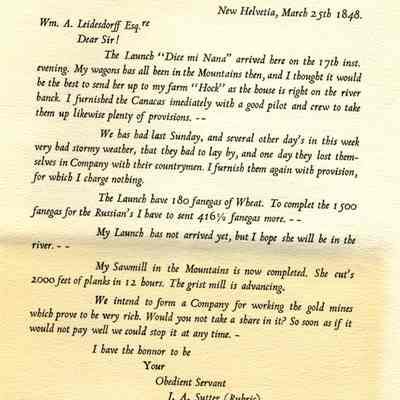 New Helvetia, March 25th 1848.
Wm. A. Leidesdorff Esq.re
Dear Sir!
The Launch "Dice mi Nana" arrived here on the 17th inst.
evening. My wagons has all been in the Mountains then, and I thought it would
be the best to send her up to my farm "Hock" as the house is right on the river
banck. I furnished the Canacas imediately with a good pilot and crew to take
them up likewise plenty of provisions. - -
We has had last Sunday, and several other day's in this week
very bad stormy weather, that they had to lay by, and one day they lost them-
selves in Company with their countrymen. I furnish them again with provision,
for which I charge nothing.
The Launch have 180 fanegas of Wheat. To complet the 1500
fanegas for the Russian's I have to sent 416½ fanegas more. - -
My Launch has not arrived yet, but I hope she will be in the
river. - -
My Sawmill in the Mountains is now completed. She cut's
2000 feet of planks in 12 hours. The grist mill is advancing.
We intend to form a Company for working the gold mines
which prove to be very rich. Would you not take a share in it? So soon as if it
would not pay well we could stop it at any time. -
I have the honnor to be
Your
Obedient Servant
J. A. Sutter (Rubric)